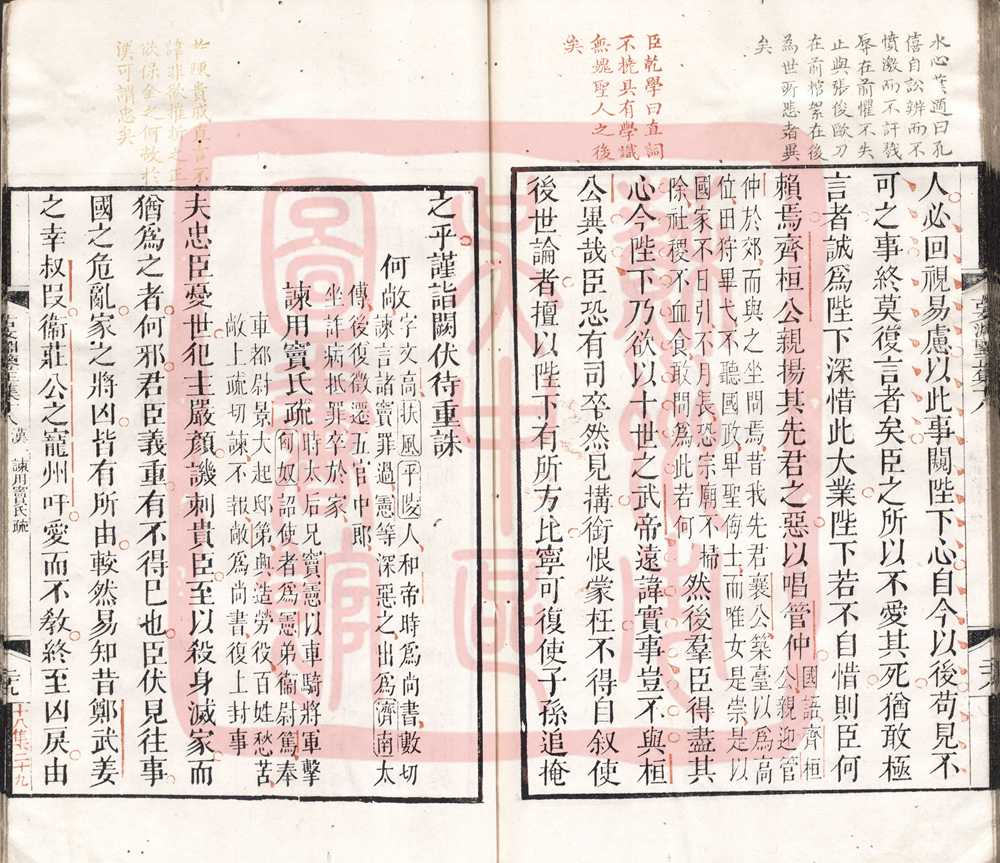 水心葉適曰孔
僖自訟辨而不
憤激而不訐戮
辱在前懼不失
止與張俊歐刀
在前棺絮在後
為世所悲者異
矣
臣乾學曰直詞
不撓具有學識
無愧聖人之後
矣
人必回視易慮以此事闚陛下心自今以後苟見不
可之事終莫復言者矣臣之所以不愛其死猶敢極
言者誠爲陛下深惜此大業陛下若不自惜則臣何
賴焉齊桓公親揚其先君之惡以唱管仲國語齊桓公親迎管
仲於郊而與之坐問焉昔我先君襄公築臺以爲高
位田狩畢弋不聽國政卑聖侮士而唯女是崇是以
國家不日引不月長恐宗廟不掃
除社稷不血食敢問爲此若何然後羣臣得盡其
心今陛下乃欲以十世之武帝遠諱實事豈不與桓
公異哉臣恐有司卒然見搆銜恨蒙枉不得自叙使
後世論者擅以陛下有所方比寧可復使子孫追掩
之乎謹詣闕伏待重誅
何敞字文高扶風平陵人和帝時爲尚書數切
諫言諸竇罪過憲等深惡之出爲濟南太
傅後復徵遷五官中郎
坐詐病抵罪卒於家
諫用竇氏疏時太后兄竇憲以車騎將軍擊
匈奴詔使者爲憲弟衞尉篤奉
車都尉景大起邸第興造勞役百姓愁苦
敞上疏切諫不報敞爲尚書復上封事
夫忠臣憂世犯主嚴顏譏刺貴臣至以殺身滅家而
猶爲之者何邪君臣義重有不得已也臣伏見往事
國之危亂家之將凶皆有所由較然易知昔鄭武姜
之幸叔段衞莊公之寵州吁愛而不敎終至凶戾由
於陳貴戚直言不
諱非欲摧折之正
欲保全之何敞於
漢可謂忠矣
漢 諫用竇氏疏
十八集二十九